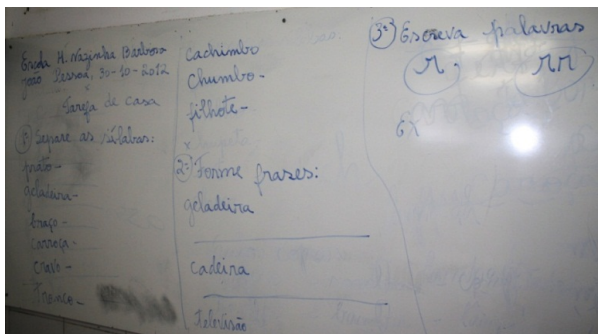 Escola M. Nazinha Barbosa
João Pessoa, 30-10-2012
Tarefa de Casa
1ª Separe as sílabas:
prato-
geladeira-
braço-
carroça-
cravo-
Tronco-
cachimbo
Chumbo-
filhote-
2ª Forme frases:
geladeira
cadeira
Televisão
3ª Escreva palavras
r,
rr
Ex